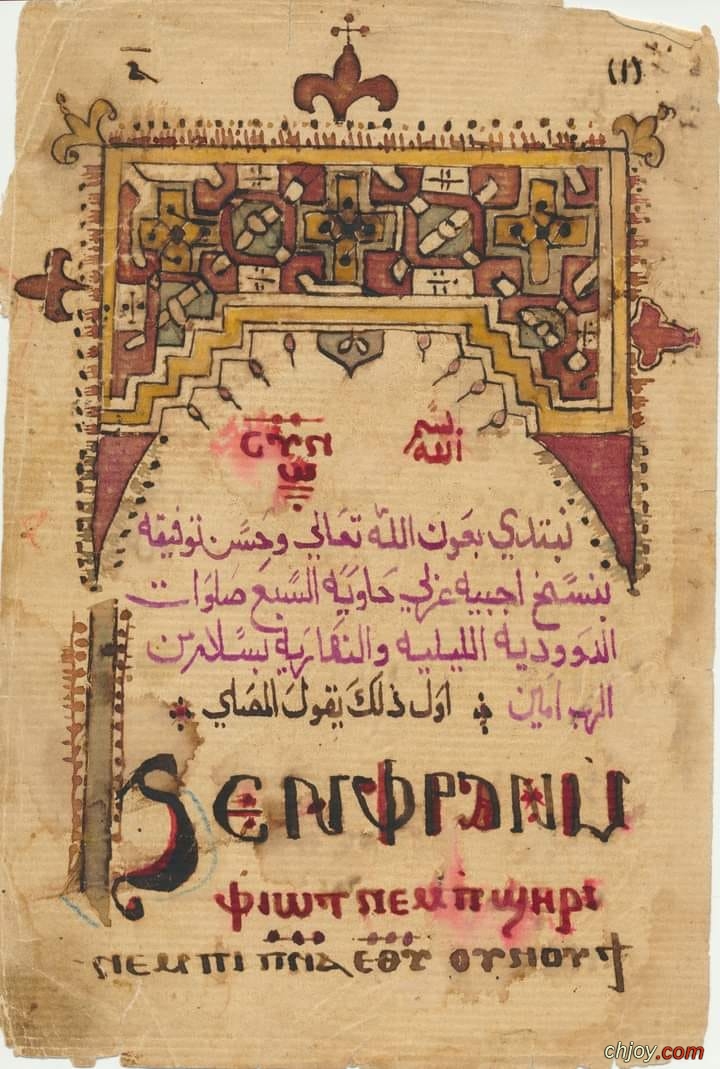 (١)
بسم
الله
نبتدي بعون الله تعالي وحسن توفيقه
بنسخ اجبيه عربي حاوية السبع صلوات
الدوودية الليليه والنهارية بسلام من
الرب امين اول ذلك يقول المصلي
ϦⲈⲚⲪⲢⲀⲚⲘ
ⲫⲓⲱⲧ ⲛⲉⲙ ⲡϣⲏⲣⲓ
ⲛⲉⲙ ⲡⲓ ⲡⲛⲁ ⲉⲑⲩ ⲟⲩⲛⲟⲩϯ
chjoy.com